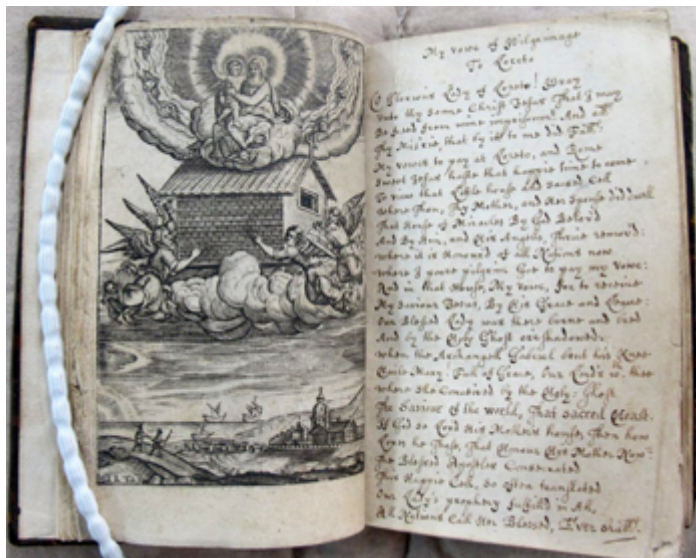 My vowe of Pilgrimage
To Loreto
O Glorious Lady of Loreto! Pray
unto thy Sonne Christ Jesus That I may
Be freed from mine imprisonment And all
Thy Miserie that by it to me did Fall:
My vowes to pay at Loreto, and Rome
Sweet Jesus haste that happie time to come
To view that Little house and Sacred Cell
Where Thou, Thy Mother, and Her Spouse did dwell
That House of Miracles By God Belov'd
And By Him, and His Angels, Thrice remov'd:
Where it is Honour'd of all Nations now
Where I youre pilgrim Got to pay my vowe:
And in that House, My vowe, for to receive
My Saviour Jesus, By His Grace and Leave:
Our Blessed Lady was there borne and bred
And by the Holy Ghost overshadowed:
When the Archangell Gabriel bent his Knee
Haile Mary! Full of Grace, Our Lord's with thee
Where She Conceived by the Holy Ghost
The Saviour of the world, That Sacred Hoast.
If God so Lov'd His Mothers house, Then how
Loves he Those, That Honour His Mother Now?
The Blessed Apostles Consecrated
This Happie Cell, So often translated
Our Lady's prophesy fulfill'd in All,
All Nations Call Her Blessed, Ever shall.